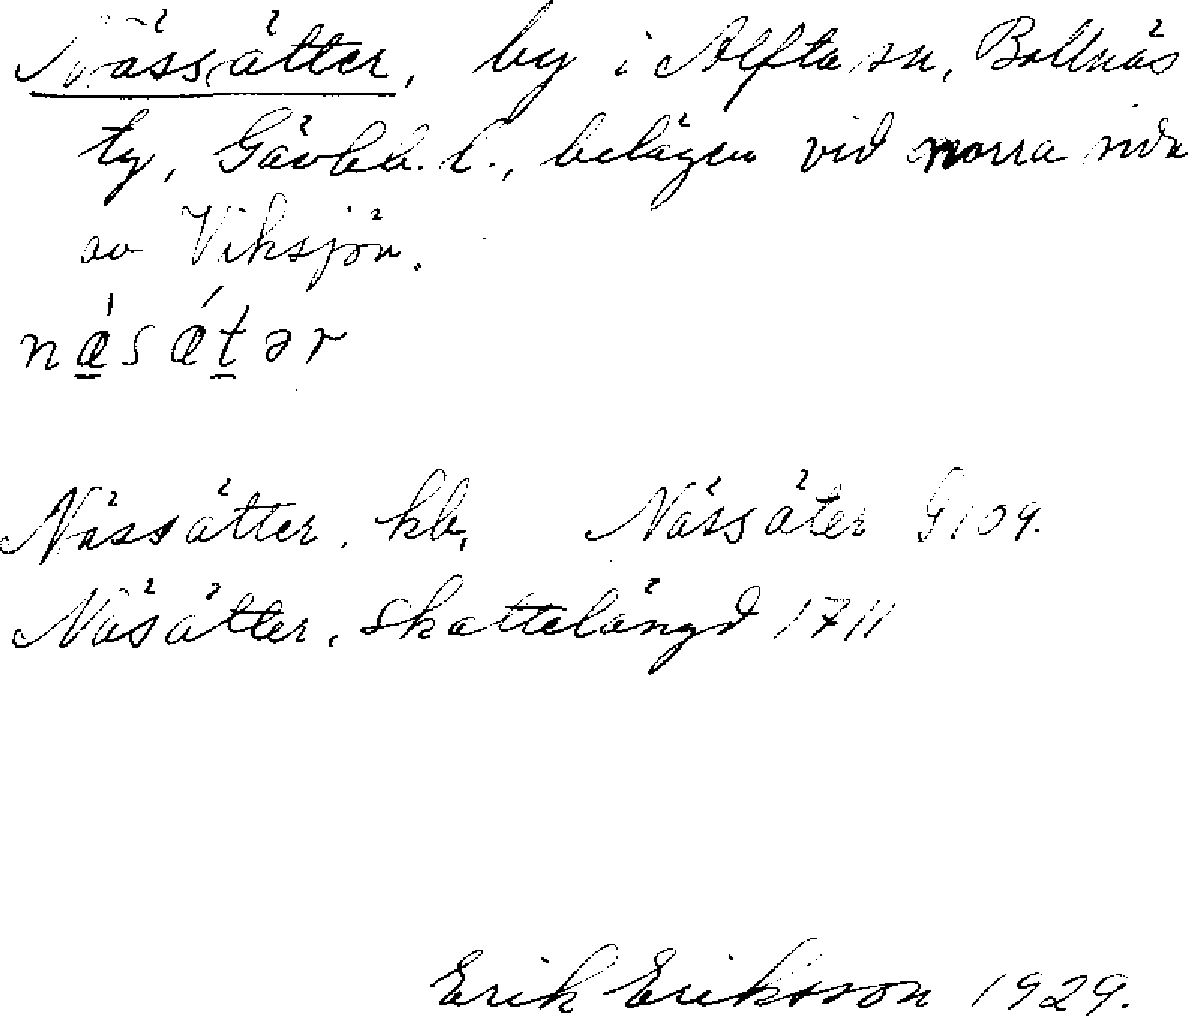 Nässätter, by i Alfta sn, Bollnäs
tg, Gävleb. l., belägen vid norra sida
av Viksjön.
næ̀sǽtər
Nässätter, kb, Nässäter G109.
Näsätter, skattelängd 1711
Erik Eriksson 1929.